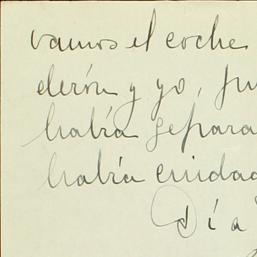 vamos el coche
derón y yo, fu
había separa
había cuidad
Día